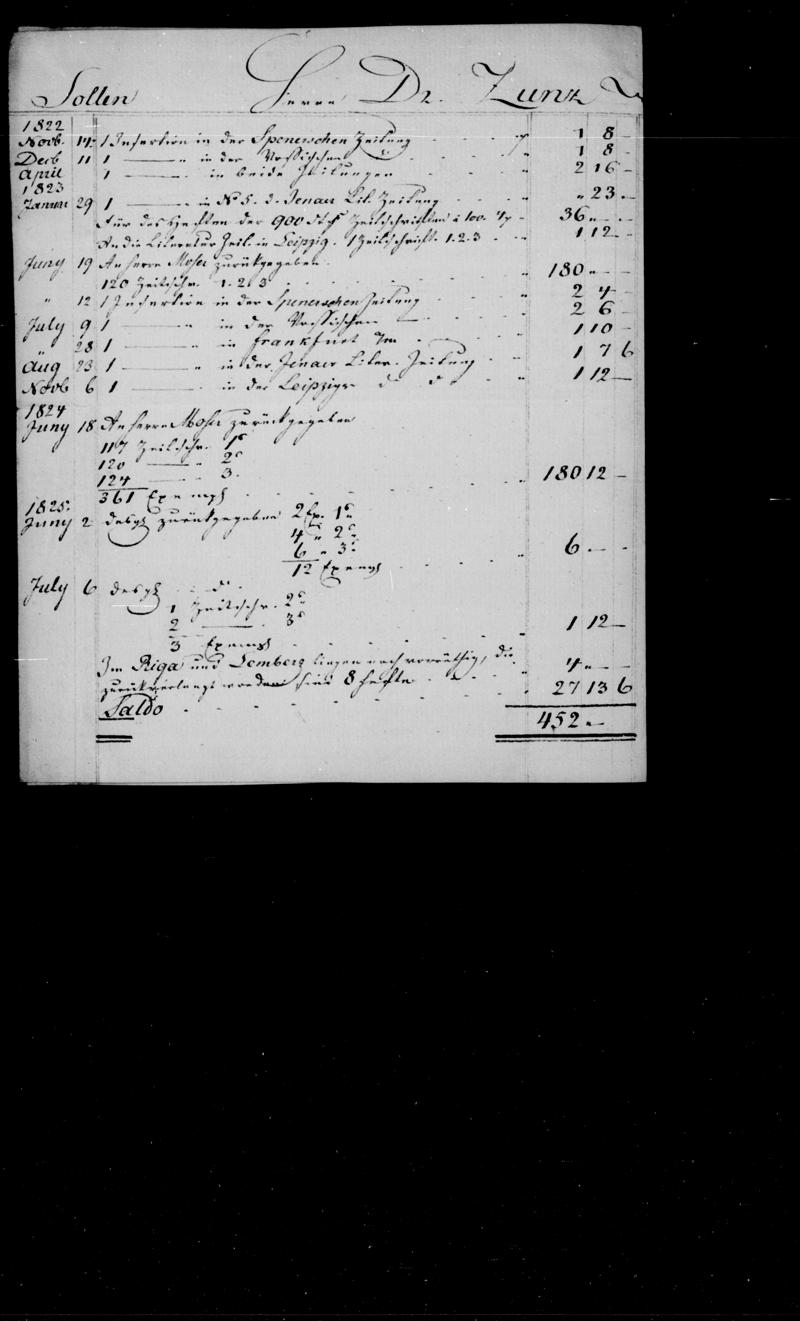 Sollen Herrn Dr. Zunz
1822
Novb. 14 1 Insertion in der Spenerschen Zeitung 1 8 —
Decb 11 1 —— " in der Vossischen " 1 8 —
April 1 —— " in beide Zeitungen " 2 16 —
1823
Januar 29 1 —— " in No 5. d. Jenaer Lit. Zeitung " " 23 —
Für das Heften der 900 Zeitschriften à 100. 36 " —
An die Literatur Zeit. in Leipzig. 1 Zeitschrift. 1. 2. 3 " 1 12 —
Juny 19 An Herrn Moser zurückgegeben
120 Zeitschr. 1. 2. 3 " 180 " —
" 12 1 Insertion in der Spenerschen Zeitung " 2 4 —
July 9 1 —— " in der Vossischen — " 2 6 —
" 28 1 —— " in Frankfurt " 1 10 —
Aug 23 1 —— " in der Jenaer Liter. Zeitung " 1 7 6
Novb 6 1 —— " in der Leipziger d d " 1 12 —
1824
Juny 18 An Herrn Moser zurückgegeben
117 Zeitschr. 1
120 —— " 2
124 —— " 3 " 180 12 —
361 Exempl
1825.
Juny 2 desgl zurückgegeben 2 Ex. 1
4 " 2
6 " 3 " 6 — -
12 Exempl
July 6 desgl d
1 Zeitschr. 2
2 —— 3 " 1 12 —
3 Exempl
In Riga und Lemberg liegen noch vorräthig, die
zurückverlangt worden sind 8 Hefte " 4 " —
Saldo " 27 13 6
452 " —